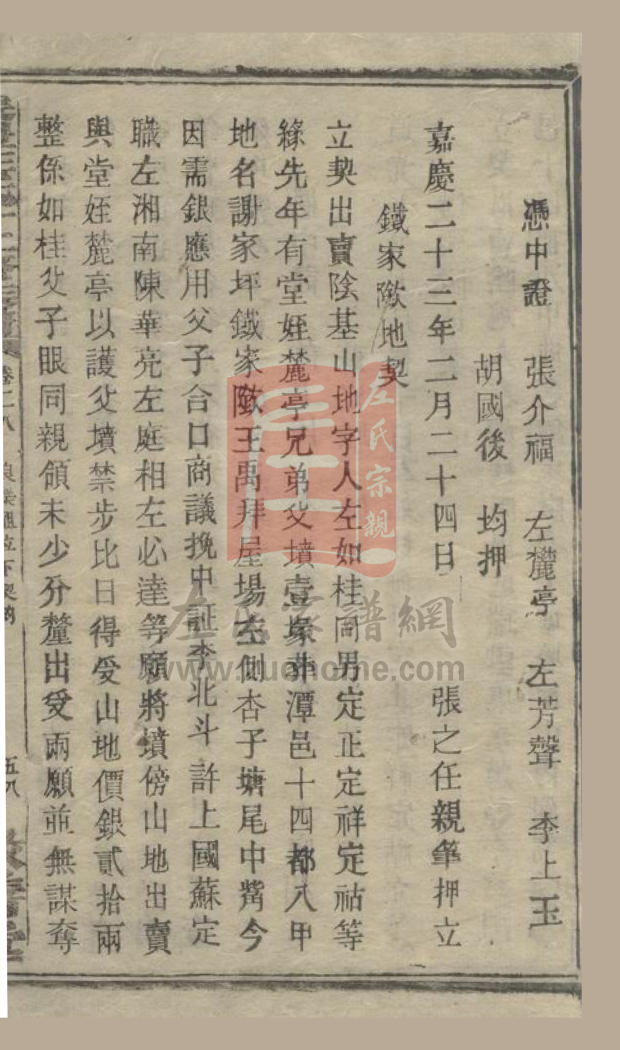 憑中證 張介福 左麓亭 左芳聲 李上玉
胡國後 均押
嘉慶二十三年二月二十四日 張之任親筆押立
鐵家陂地契
立契出賣陰基山地字人左如桂同男定正定祥定祜等
緣先年有堂姪麓亭兄弟父墳壹塚葬潭邑十四都八甲
地名謝家坪鐵家陂王禹拜屋場左側杏子塘尾中嘴今
因需銀應用父子合口商議挽中証李北斗許上國蘇定
職左湘南陳華亮左庭相左必達等願將墳傍山地出賣
與堂姪麓亭以護父墳禁步比日得受山地價銀貳拾兩
整係如桂父子眼同親領未少分釐出受兩願並無謀奪
卷二八
五八
左氏宗親
左氏家譜網
www.zuohome.com